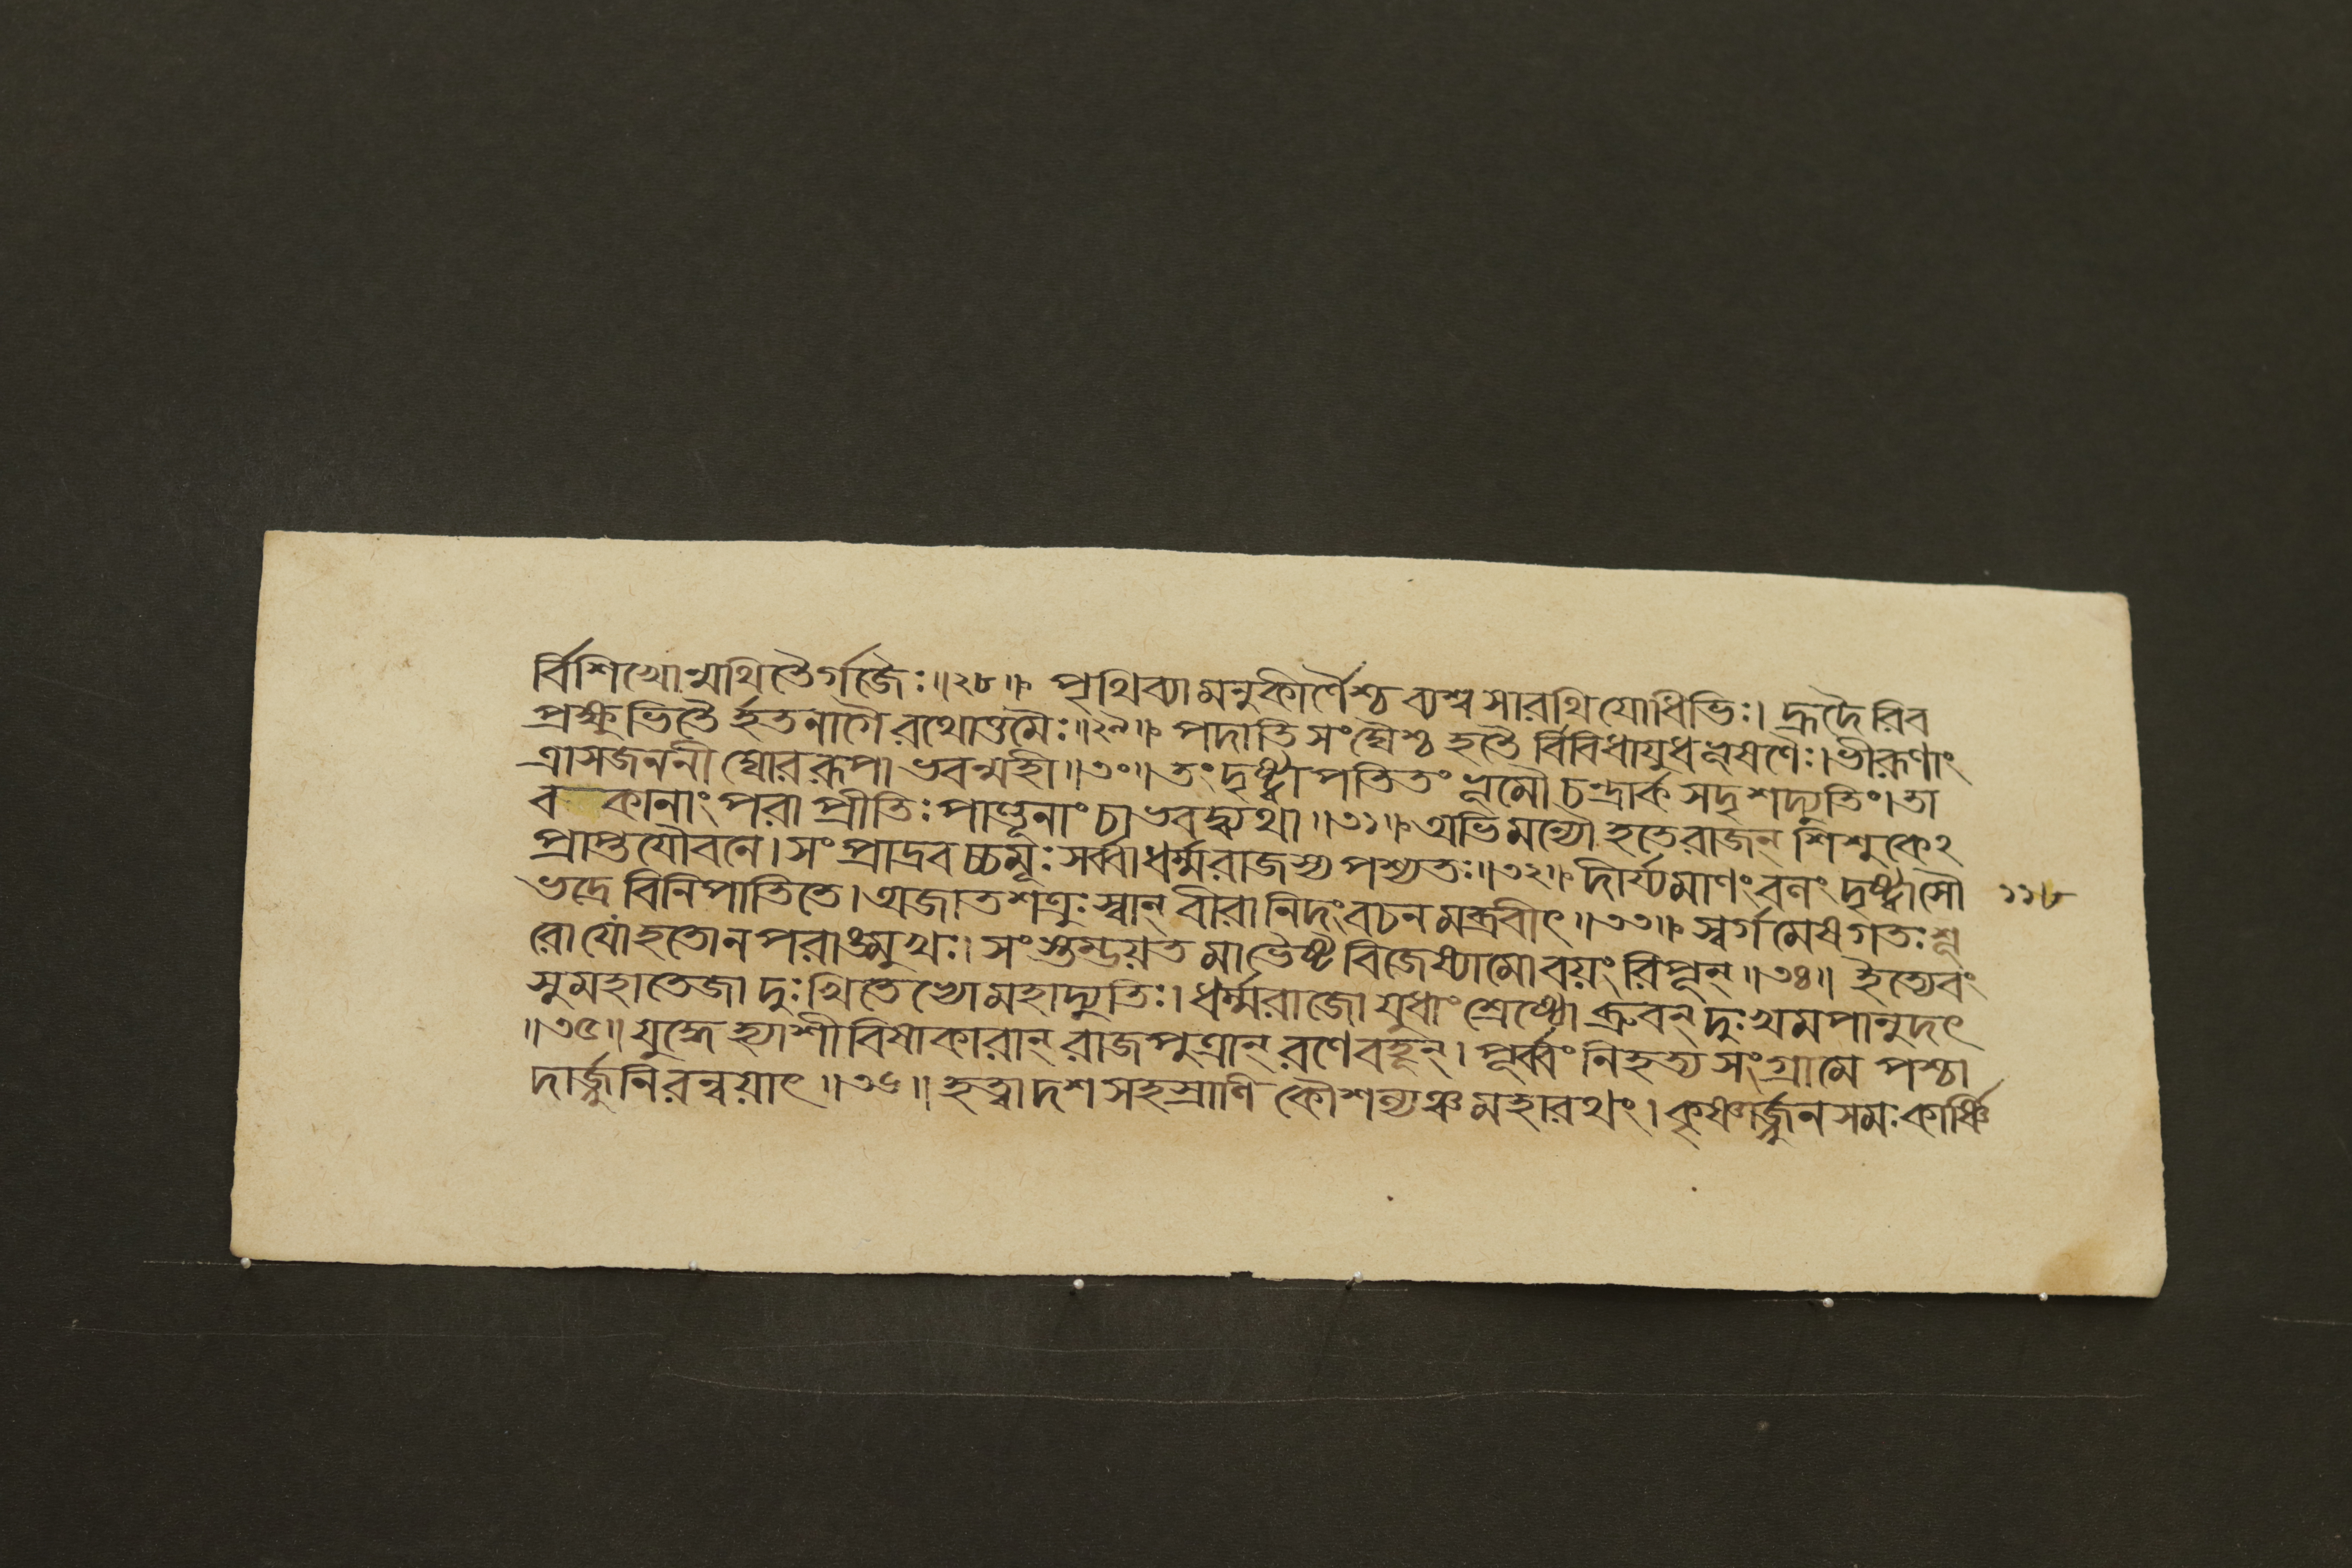 র্বিশিখোন্মথিতৈর্গজৈঃ॥২৮॥ পৃথিব্যামনুকীর্ণৈশ্চ ব্যশ্বসারথিযোধিভিঃ। হ্রদৈরিব
প্রক্ষুভিতৈর্হতনাগৈ রথোত্তমৈঃ॥২৯॥ পদাতিসংঘৈশ্চ হতৈর্বিবিধায়ুধভূষণৈঃ। ভীরূণাং
ত্রাসজননী ঘোররূপাভবন্মহী॥৩০॥ তং দৃষ্ট্বা পতিতং ভূমৌ চন্দ্রার্কসদৃশদ্যুতিং। তা
বকানাং পরা প্রীতিঃ পাণ্ডূনাং চাভবদ্ব্যথা॥৩১॥ অভিমন্যৌ হতে রাজন্ শিশুকেঽ
প্রাপ্তযৌবনে। সংপ্রাদ্রবচ্চমূঃ সর্ব্বা ধর্ম্মরাজস্য পশ্যতঃ॥৩২॥ দীর্য্যমাণং বলং দৃষ্ট্বা সৌ
ভদ্রে বিনিপাতিতে। অজাতশত্রুঃ স্বান্ বীরানিদং বচনমব্রবীৎ॥৩৩॥ স্বর্গমেষ গতঃ শূ
রো যো হতো ন পরাঙ্মুখঃ। সংস্তম্ভয়ত মা ভৈষ্ট বিজেষ্যামো বয়ং রিপূন্॥৩৪॥ ইত্যেবং
সুমহাতেজা দুঃখিতেভ্যো মহাদ্যুতিঃ। ধর্ম্মরাজো যুধাং শ্রেষ্ঠো ব্রুবন্ দুঃখমপানুদৎ
॥৩৫॥ যুদ্ধে হ্যাশীবিষাকারান্ রাজপুত্রান্ রণে বহূন্। পূর্ব্বং নিহত্য সংগ্রামে পশ্চা
দার্জ্জুনিরন্বয়াৎ॥৩৬॥ হত্বা দশসহস্রাণি কৌশল্যঞ্চ মহারথং। কৃষ্ণার্জ্জুনসমঃ কার্ষ্ণি
১১৮